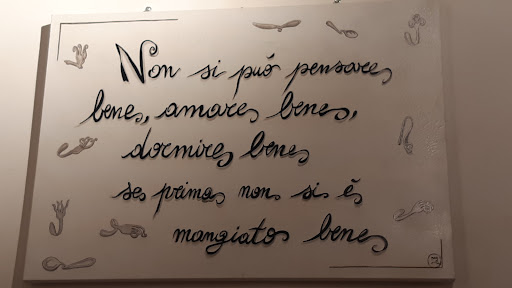 Non si può pensare
bene, amare bene,
dormire bene
se prima non si è
mangiato bene